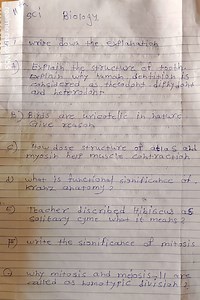 sci Biology
1 write down the explanation
A) Explain the structure of tooth.
Explain why human dentition is
considered as thecodont diphyodont
and heterodont
B) Birds are uricotelic in nature
Give reason
C) How dose structure of actin and
myosin help muscle contraction
D) what is functional significance of
kranz anatomy?
E) Teacher discribed Hibiscus as
solitary cyme what it means?
F) write the significance of mitosis
G) why mitosis and meiosis II are
called as homotypic division?